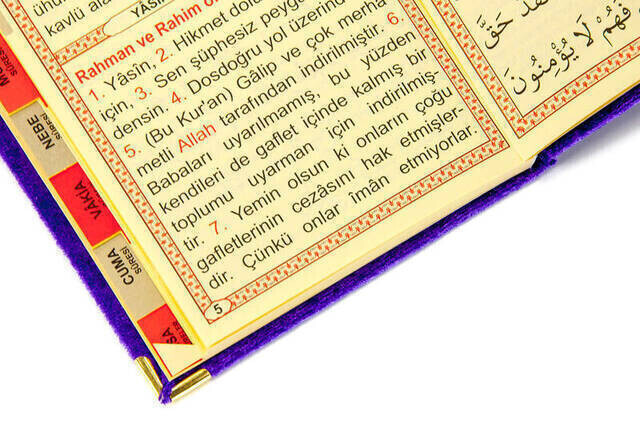 YÂSÎN
kavlü ala
Rahman ve Rahim ol
1. Yâsîn, 2. Hikmet dolu
için, 3. Sen şüphesiz peyge
densin. 4. Dosdoğru yol üzerinde
5. (Bu Kur'an) Gâlip ve çok merha
metli Allah tarafından indirilmiştir. 6.
Babaları uyarılmamış, bu yüzden
kendileri de gaflet içinde kalmış bir
toplumu uyarman için indirilmiş-
tir. 7. Yemin olsun ki onların çoğu
gafletlerinin cezâsını hak etmişler-
dir. Çünkü onlar imân etmiyorlar.
5
حَقَّ
فَهُمْ لَا يُؤْمِنُونَ
SÛRESİ
NEBE
SÛRESİ
VÂKIA
CUMA
SÛRESİ